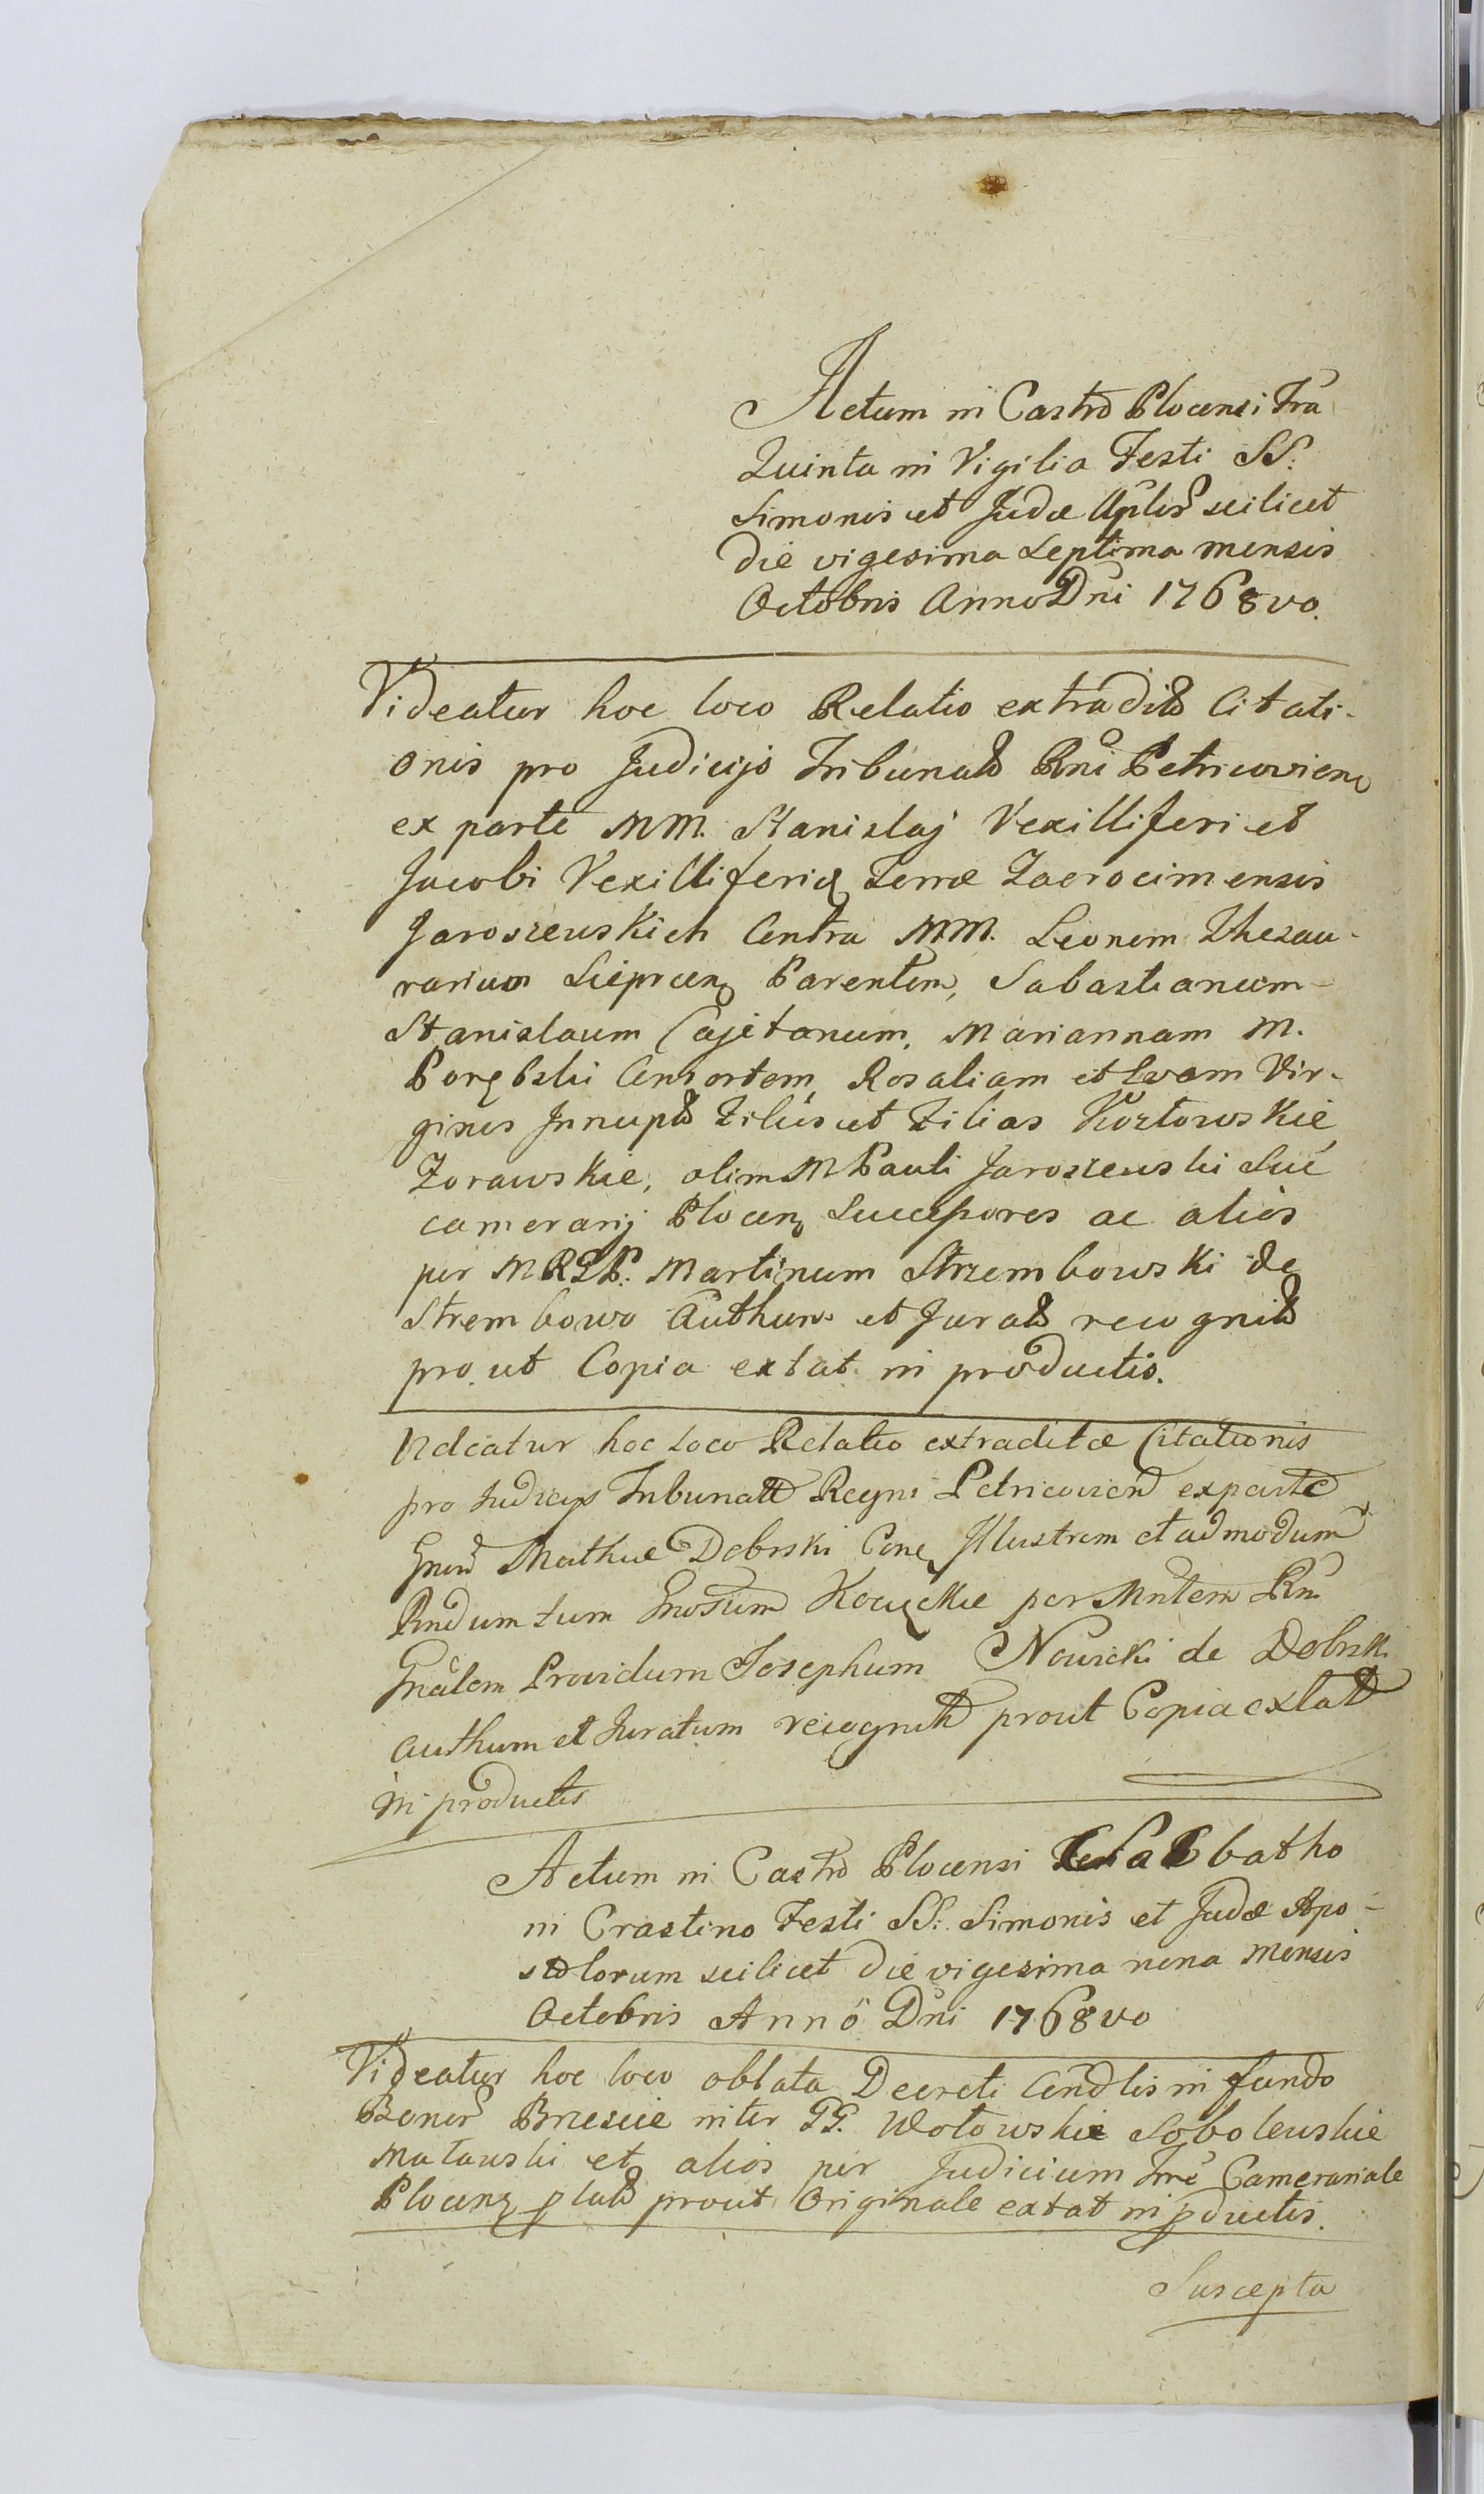 Actum in Castro Plocensi Fra
Quinta in Vigilia Festi SS:
Simonis et Judæ Aplor scilicet
die vigesima septima mensis
Octobris Anno Dni 1768vo.
Videatur hoc loco Relatio extradit Citati-
onis pro Judicijs Tribunal Rni Petricovien
ex parte MM. Stanislaj Vexilliferi et
Jacobi Vexilliferid Terræ Zacrocimensis
Jaroszewskich Contra MM. Leonem Thezau-
rarium Sieprcen Parentem, Sabastianum
Stanislaum Cajetanum, Mariannam M.
Porębski Consortem, Rosaliam et Evam Vir-
gines Innupt Filios et Filias Kozłowskie
Zorawskie, olim M Pauli Jaroszewski Suc
camerarij Plocen Successores ac alios
per MRGP. Martinum Strzembowski de
Strembowo Authum et Jurat recognit
pro ut Copia extat in productis.
Videatur hoc loco Relatio extraditæ Citationis
pro Judicijs Tribunall Regni Petricovien ex parte
Gnen Mathiæ Dobrski Cone Illustrem et admodum
Rndum tum Gnosum Kouckie per Mntem Rni
Gnalem Providum Josephum Nowicki de Dobrsk
authum et Juratum recognit prout Copia extat
in productis
Actum in Castro Plocensi Sabbatho
in Crastino Festi SS: Simonis et Judæ Apo-
stolorum scilicet die vigesima nona mensis
Octobris Anno Dni 1768vo
Videatur hoc loco oblata Decreti Condlis in fundo
Bonor Brzescie inter GG. Wołowskie Sobolewskie
Matawski et alios per Judicium Tre Camerariale
Plocen plat prout Originale extat in pductis.
Suscepta